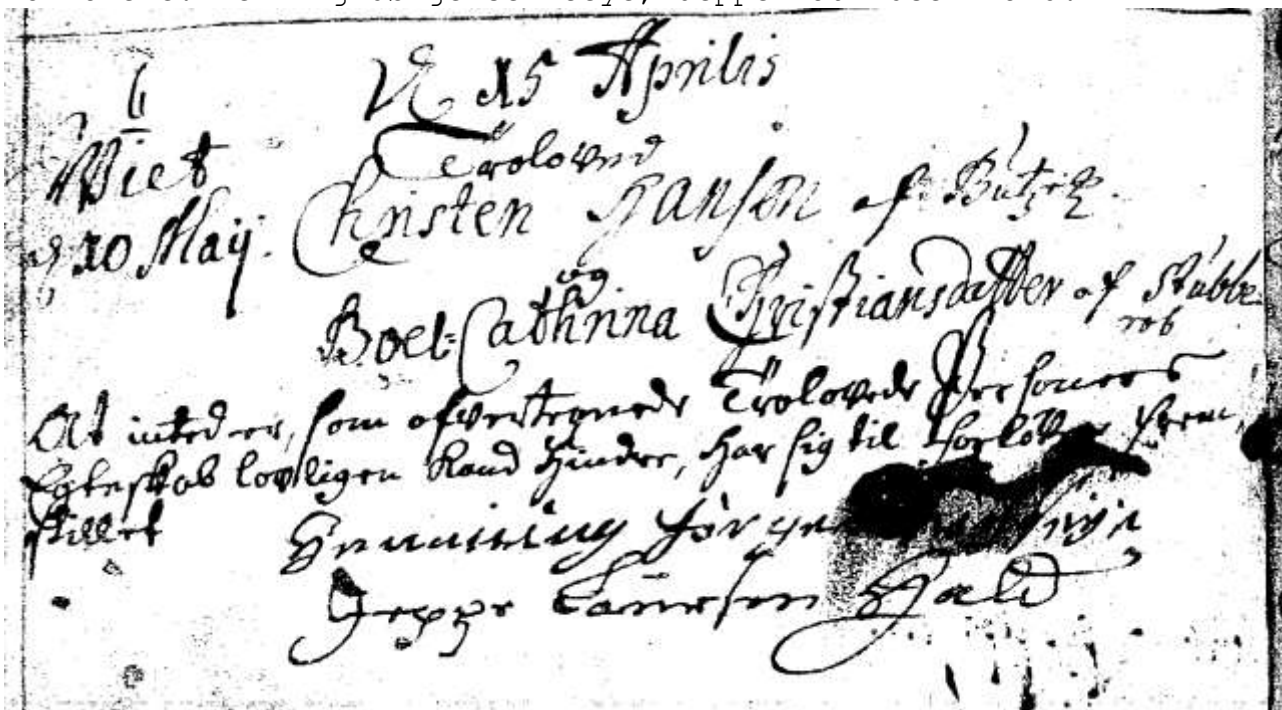 d 15 Aprilis
6
Viet Troloved
d 10 Maij. Christen Hansen af Bützek
og
Boel-Cathrina Christiansdatter af Stubbe
rob
At inted er, som ofventegnede Trolovede Persones
Egteskab lovligen kand hindre, har sig til Forlover frem,
stillet Henning Jørgen
Jeppe Laursen Hald